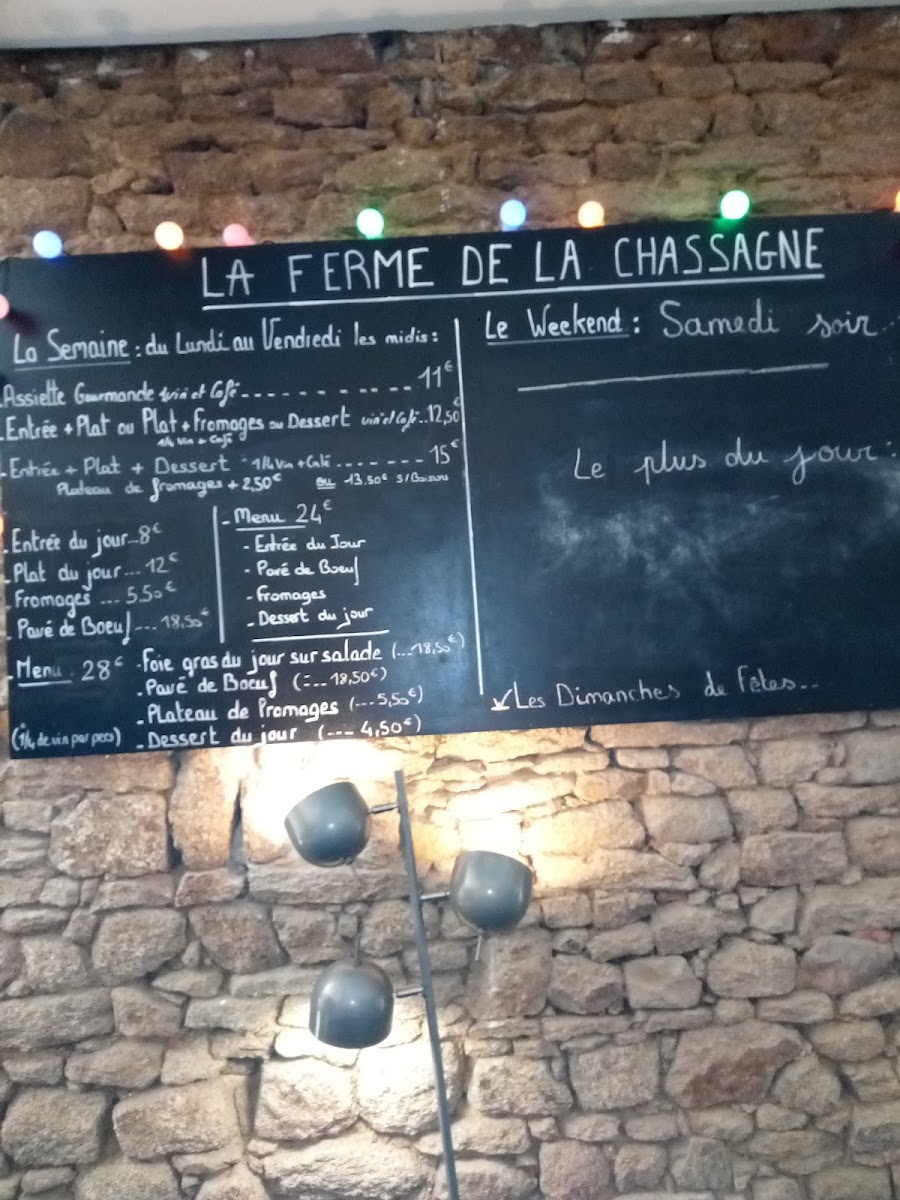 LA FERME DE LA CHASSAGNE
La Semaine : du Lundi au Vendredi les midis :
- Assiette Gourmande vin et Café - - - - - - - - - 11€
- Entrée + Plat ou Plat + Fromages ou Dessert vin et Café .. 12,50
1/4 Vin + Café
- Entrée + Plat + Dessert - 1/4 Vin + Café - - - - - - - 15€
Plateau de fromages + 2,50€ ou 13.50€ S/Boissons
- Entrée du jour -- 8€
- Plat du jour --- 12€
- Fromages --- 5.50€
- Pavé de Boeuf --- 18,50€
- Menu 24€
- Entrée du Jour
- Pavé de Boeuf
- Fromages
- Dessert du jour
- Menu 28€
- Foie gras du jour sur salade (...18,50€)
- Pavé de Boeuf (--- 18,50€)
- Plateau de Fromages (--- 5,50€)
(1/4 de vin par pers) - Dessert du jour (--- 4,50€)
Le Weekend : Samedi soir..
Le plus du jour :
Les Dimanches de Fêtes...